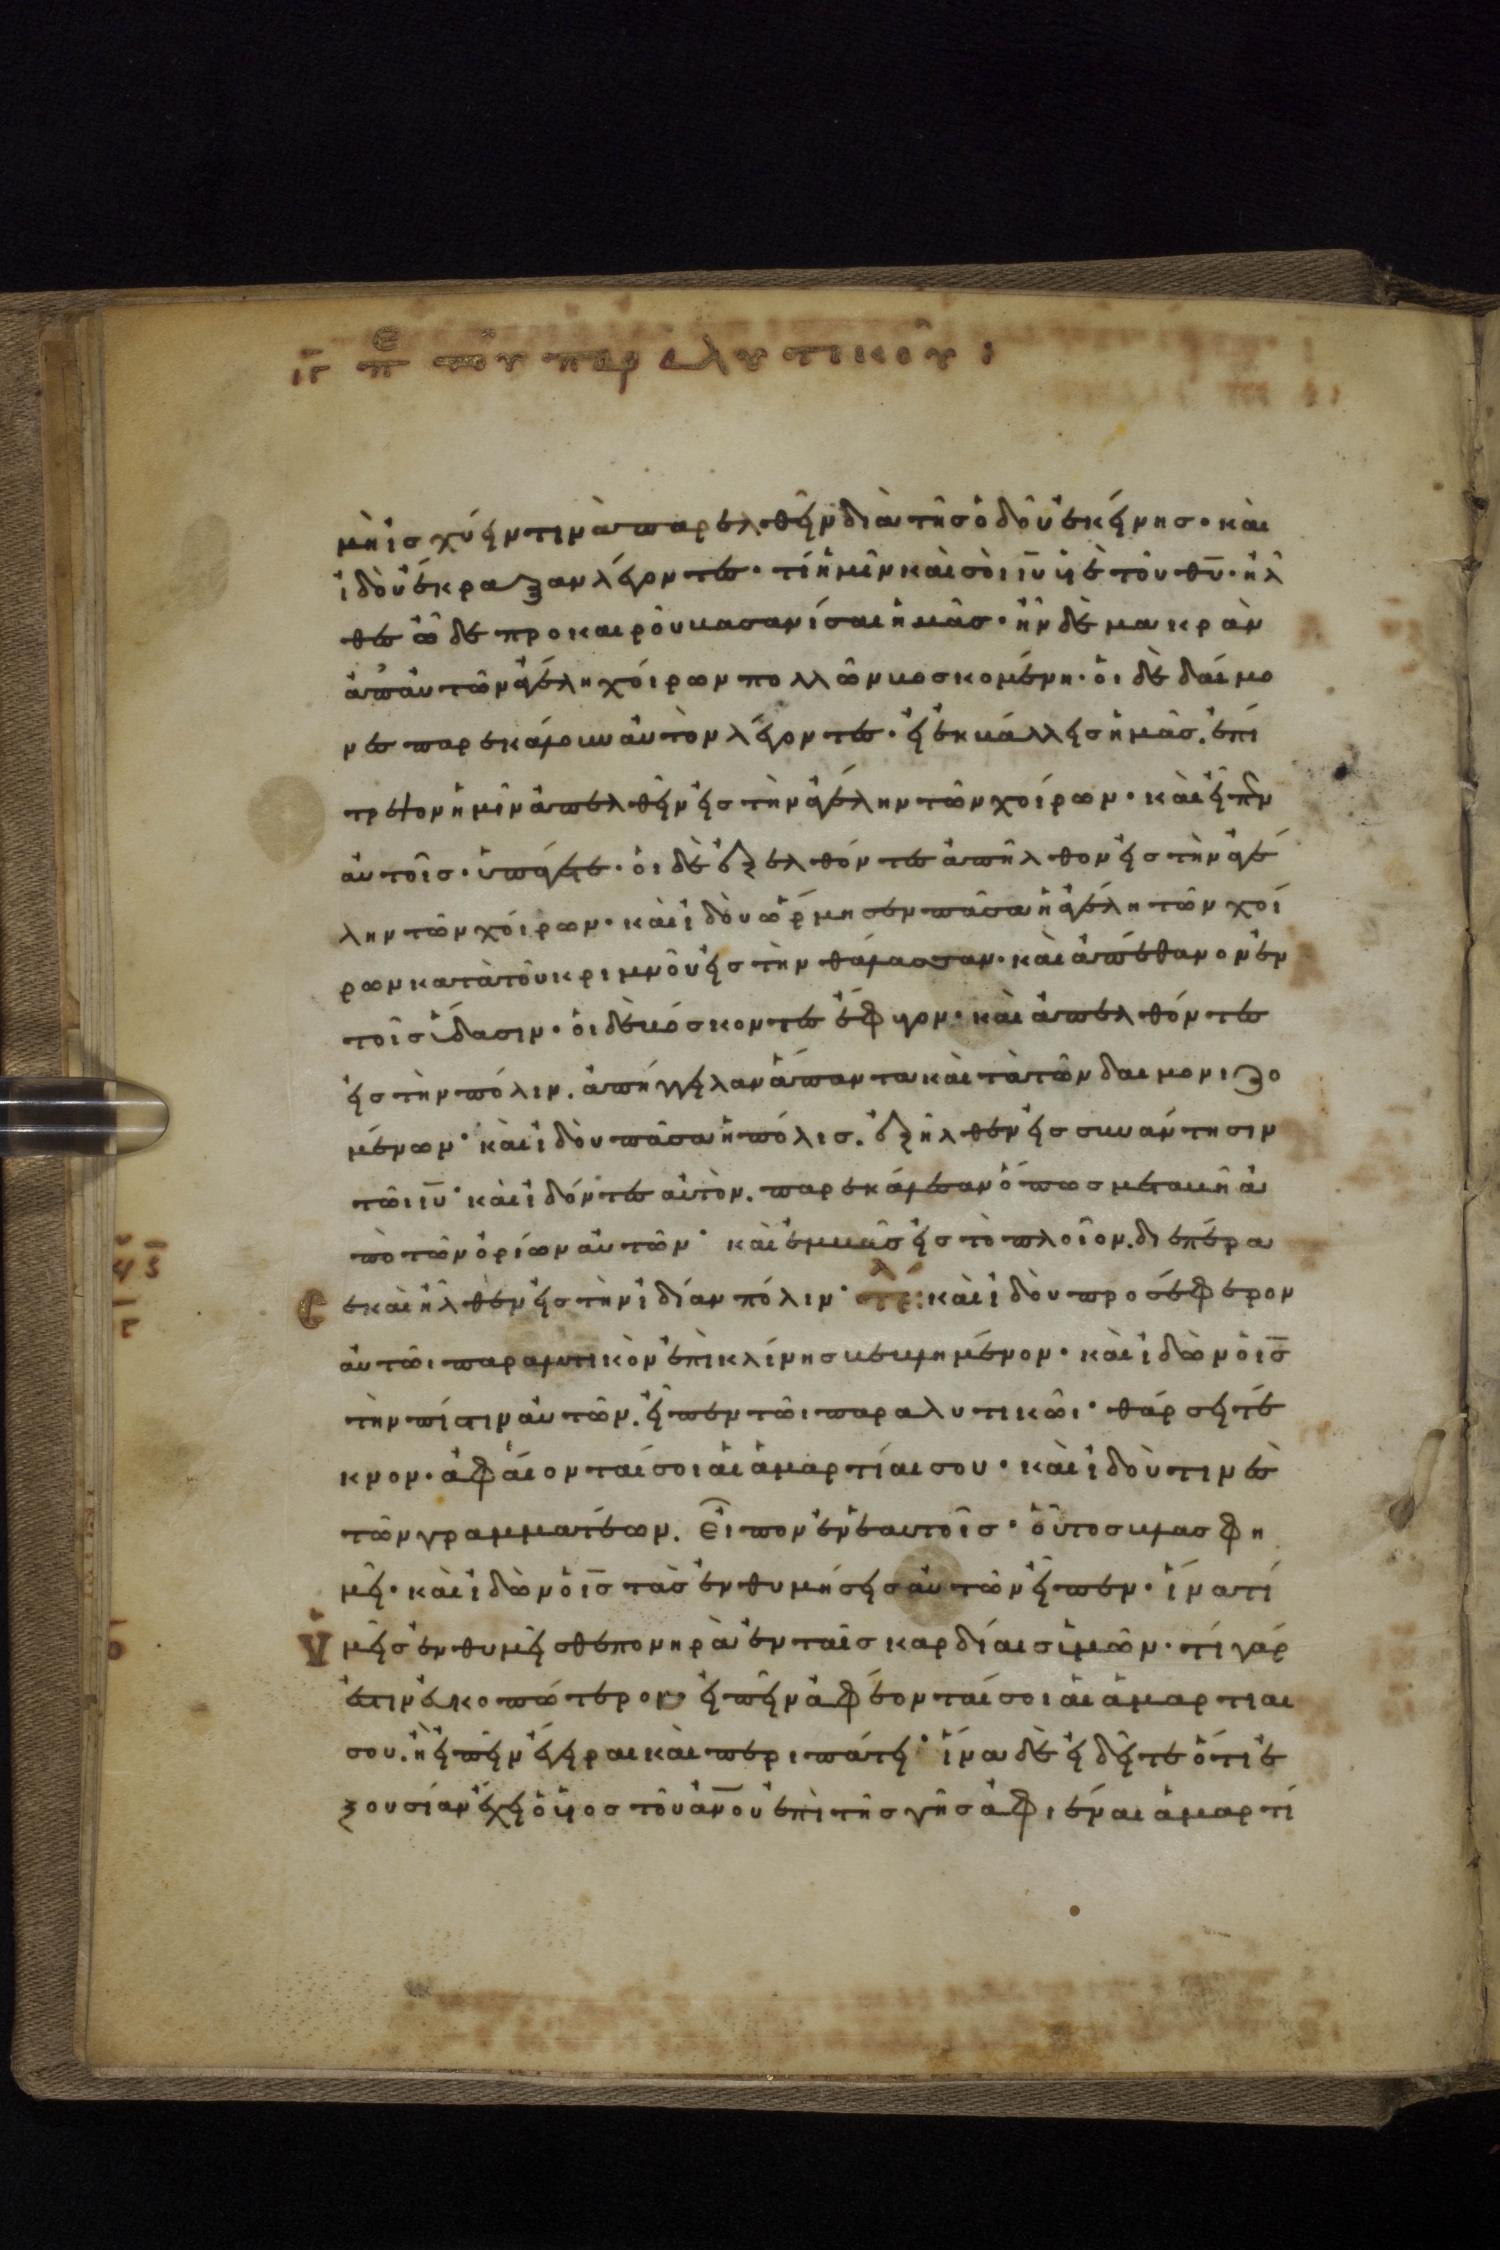 ιγ πε του παραλυτικου :
μὴ ἰσχύειν τινὰ παρελθεῖν διὰ τῆς ὁδοῦ ἐκείνης· καὶ
ἰδοὺ ἔκραξαν λέγοντες· τί ἡμῖν καὶ σοὶ ιυ υἱὲ τοῦ θυ· ἦλ
θες ὧδε προ καιροῦ βασανίσαι ἡμᾶς· ἦν δὲ μακρὰν
ἀπ' αὐτῶν ἀγέλη χοίρων πολλῶν βοσκομένη· οἱ δὲ δαίμο
νες παρεκάλουν αὐτὸν λέγοντες· εἰ ἐκβάλλεις ἡμᾶς. ἐπί
τρεψον ἡμῖν ἀπελθεῖν εἰς τὴν ἀγέλην τῶν χοίρων· καὶ εἶπεν
αὐτοῖς· ὑπάγετε· οἱ δὲ ἐξελθόντες ἀπῆλθον εἰς τὴν ἀγέ
λην τῶν χοίρων· καὶ ἰδοὺ ὥρμησεν πᾶσα ἡ ἀγέλη τῶν χοί
ρων κατὰ τοῦ κριμνοῦ εἰς τὴν θάλασσαν· καὶ ἀπέθανον ἐν
τοῖς ὕδασιν· οἱ δὲ βόσκοντες ἔφυγον· καὶ ἀπελθόντες
εἰς τὴν πόλιν. ἀπήγγειλαν ἅπαντα καὶ τὰ τῶν δαιμονιζο
μένων· καὶ ἰδοὺ πᾶσα ἡ πόλις. ἐξῆλθεν εἰς συναντησιν
τῶι ιυ· καὶ ἰδόντες αὐτὸν. παρεκάλεσαν ὅπως μεταβῆ ἀ
πὸ τῶν ὁρίων αὐτῶν· καὶ ἐμβὰς εἰς τὸ πλοῖον. διεπέρα
σε καὶ ἦλθεν εἰς τὴν ἰδίαν πόλιν· τέλ: καὶ ἰδοὺ προσέφερον
αὐτῶι παραλυτικὸν ἐπὶ κλίνης βεβλημένον· καὶ ἰδὼν ὁ ις
τὴν πίστιν αὐτῶν. εἶπεν τῶι παραλυτικῶι· θάρσει τέ
κνον· ἀφαίονταί σοι αἱ ἁμαρτίαι σου· καὶ ἰδού τινὲς
τῶν γραμματέων. εἶπον ἐν ἑαυτοῖς· οὗτος βλασφη
μεῖ· καὶ ἰδὼν ὁ ις τὰς ἐνθυμήσεις αὐτῶν εἶπεν· ἵνα τί
ὑμεῖς ἐνθυμεῖσθε πονηρὰ ἐν ταῖς καρδίαις ὑμῶν· τί γάρ
ἐστιν εὐκοπώτερον· εἰπεῖν ἀφέονταί σοι αἱ ἁμαρτιαι
σου. ἢ εἰπεῖν ἔγειραι καὶ περιπάτει· ἵνα δὲ εἰδῆτε ὅτι ἐ
ξουσίαν ἔχει ὁ υἱος τοῦ ανου ἐπὶ τῆς γῆς ἀφιέναι ἁμαρτί